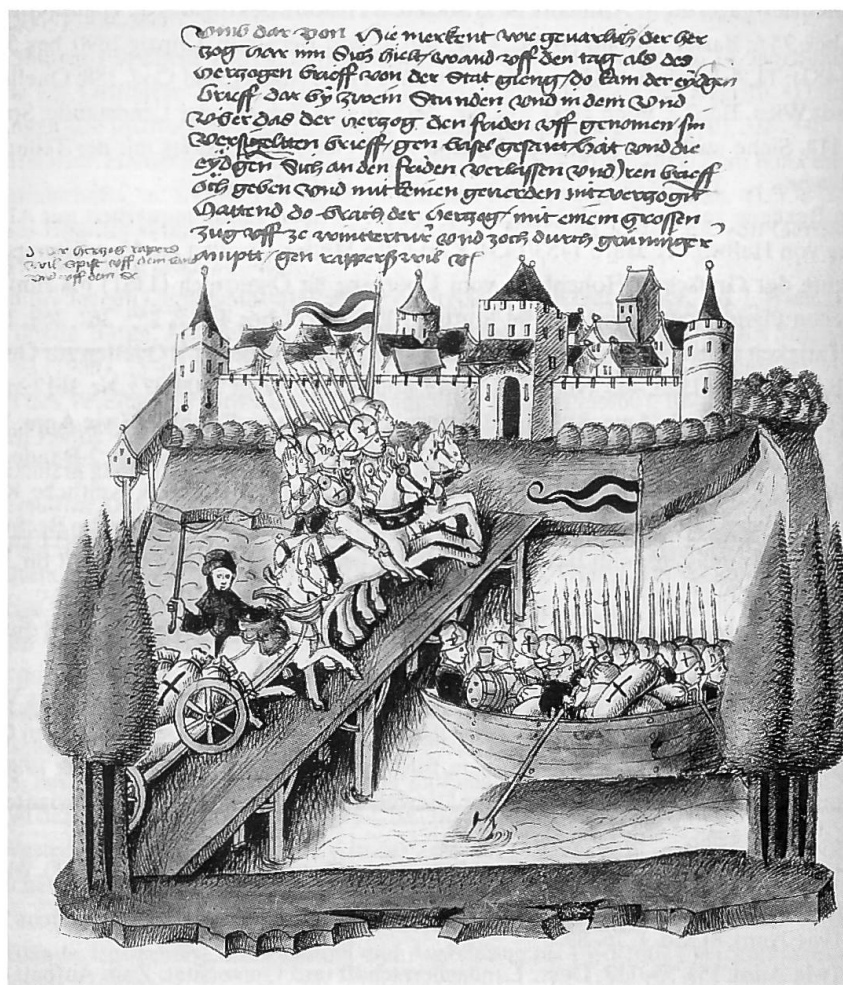 Vmb dar von Hie merkent wie gevarlich der her
zog hier inn Sich hielt / wand vff den tag als des
hertzogen brieff von der Stat gieng / do kam der eydgen
brieff dar by zwein Stunden vnd in dem vnd
v́ber das der hertzog den friden vff genomen / sin
versigelten brieff / gen basel gesant hat vnd die
eydgen Sich an den friden verliessen vnd Jren brieff
och geben vnd mit keinen geverden nit verzogen
hattend do brach der hertzog / mit einem grossen
zug vff ze winttertur vnd zoch durch grüninger
amptt / gen rapperswil vf
der hertzog rappers
wil Spist vff dem land
vnd vff dem Se